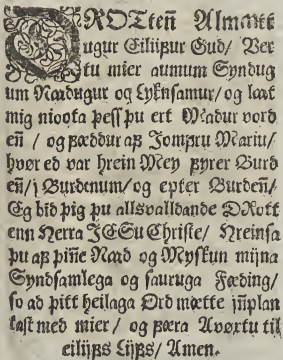 DROTteñ Almátt
ugur Eiliifur Gud/ Ver
tu mier aumum Syndug
um Nádugur og Lyknsamur/ og laat
mig nioota þess þu ert Madur vord
eñ / og fæddur af Jomfru Mariu/
hvør ed var hrein Mey fyrer Burd
eñ/ j Burdenum/ og epter Burdeñ/
Eg bid þig þu allsvalldande DRott
enn Herra JESu Christe/ Hreinsa
þu af þiñe Naad og Myskun mijna
Syndsamlega og sauruga Fæding/
so ad þitt heilaga Ord mætte jñplan
tast med mier / og færa Avøxtu til
eilijfs Lijfs/ Amen.